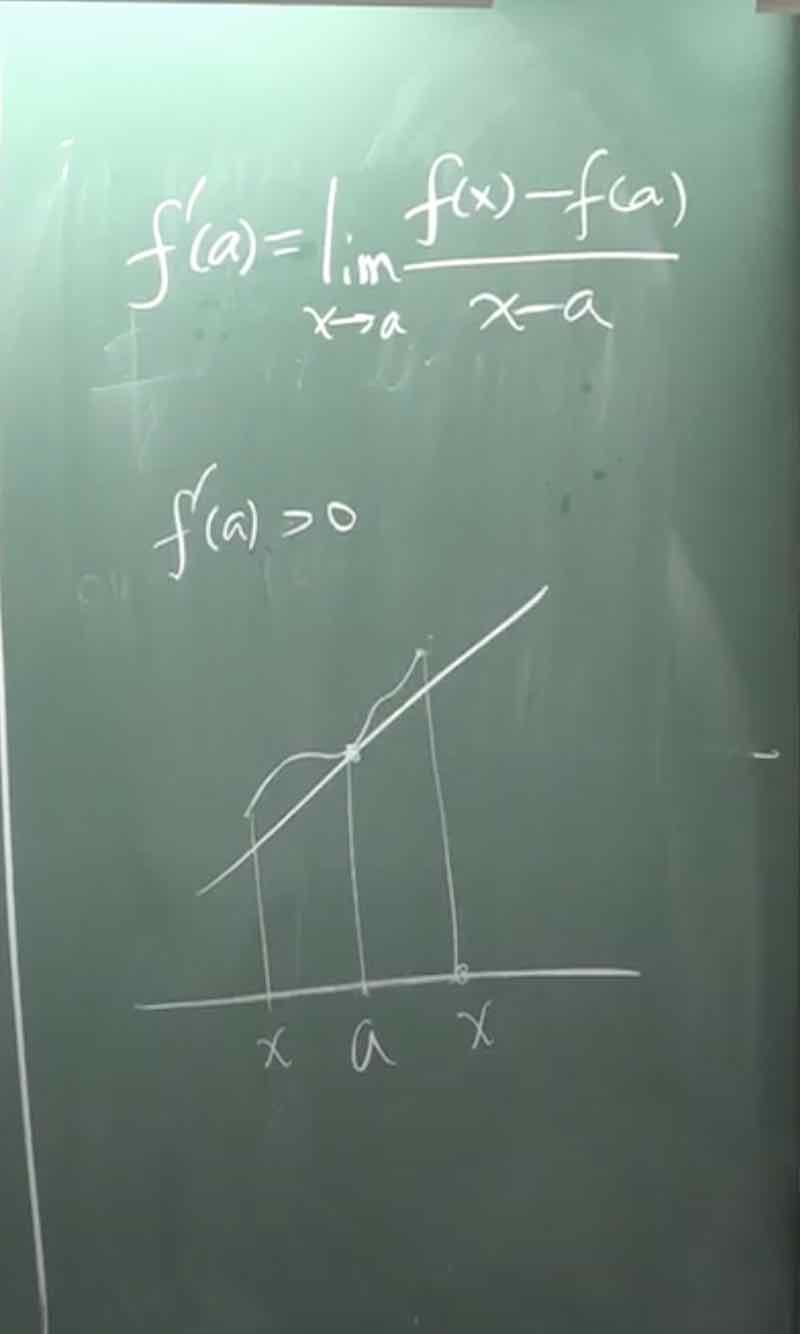 f'(a) = lim x→a f(x) − f(a) / x − a
f'(a) > 0
x a x